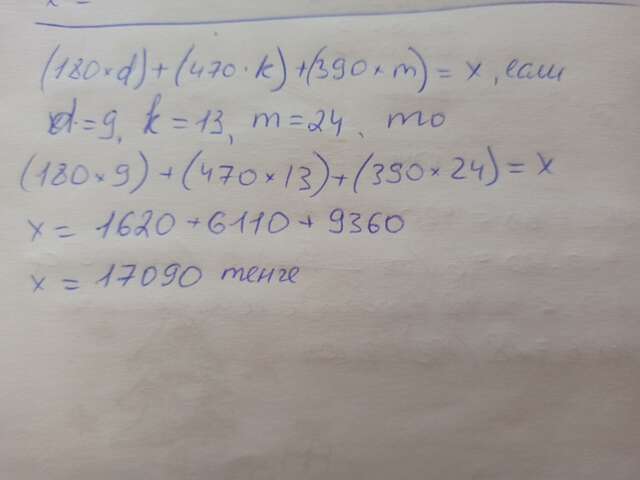 (180×d)+(470·k)+(390×m)=x, если
d=9, k=13, m=24, то
(180×9)+(470×13)+(390×24)=x
x=1620+6110+9360
x=17090 тенге